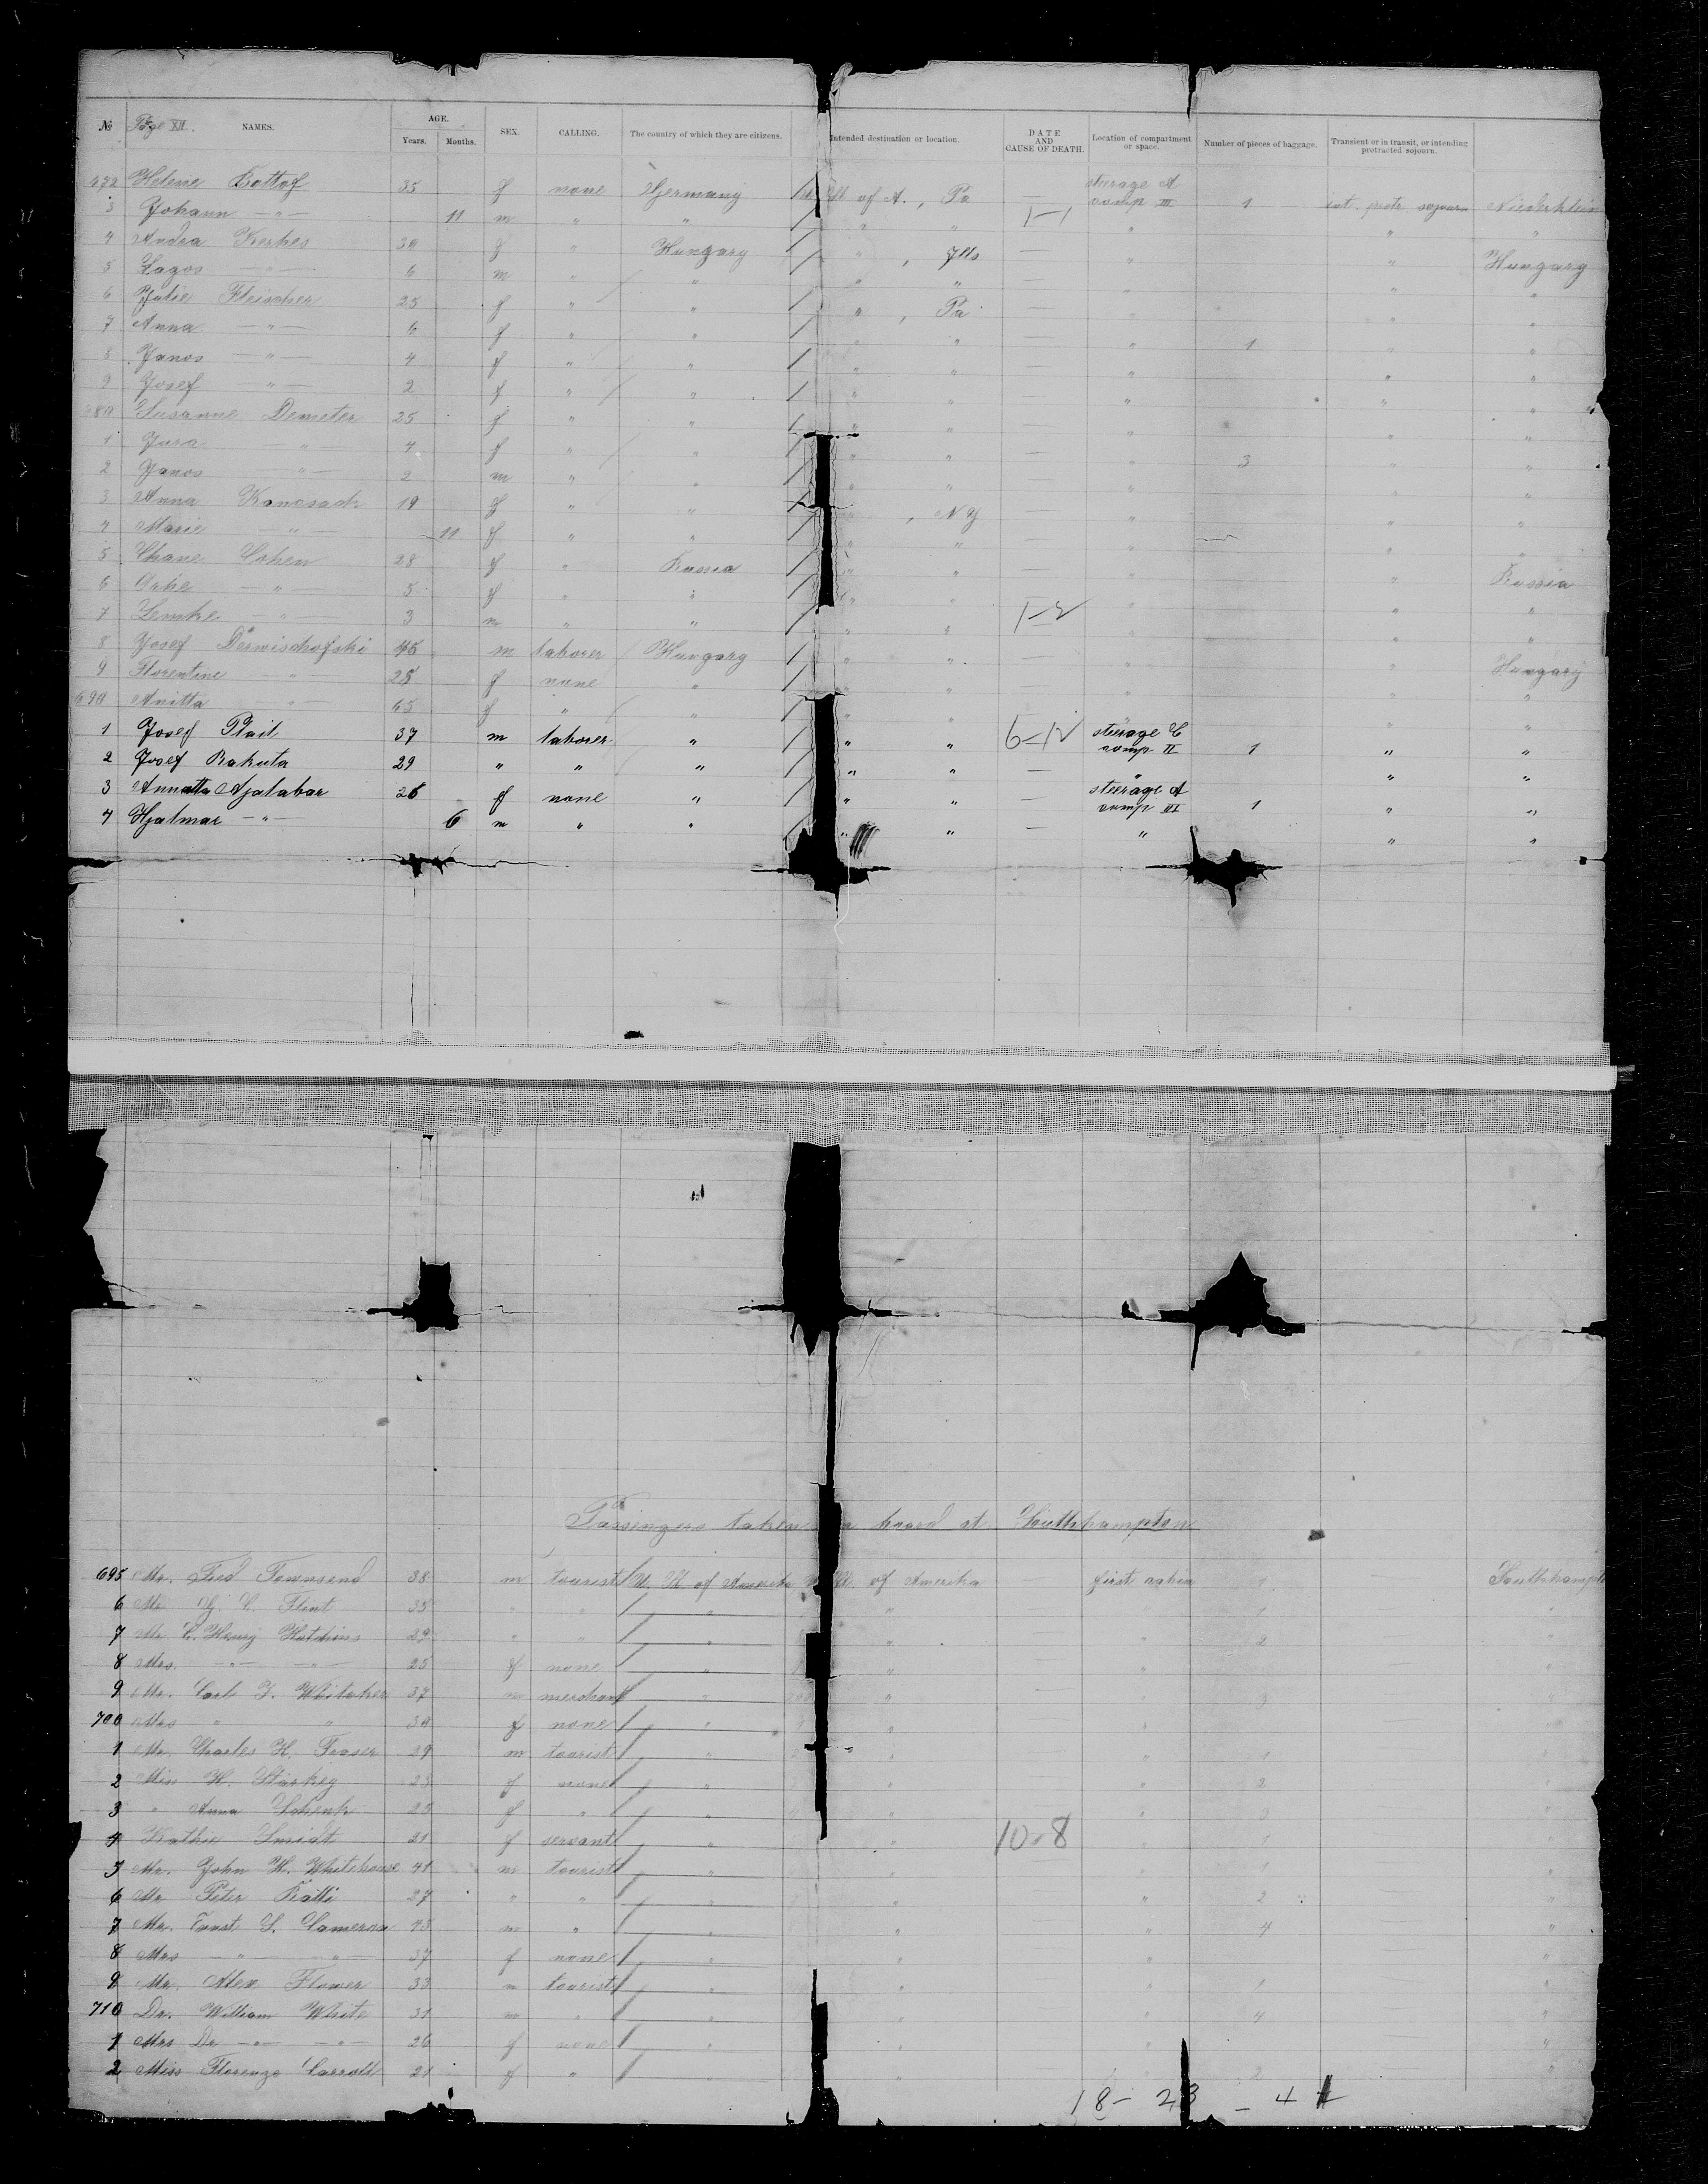 № Page XII. NAMES. AGE. Years. Months. SEX. CALLING. The country of which they are citizens. Intended destination or location. DATE AND CAUSE OF DEATH. Location of compartment or space. Number of pieces of baggage. Transient or in transit, or intending protracted sojourn.
672 Helene Kottof 35 f none Germany U St of A., Pa — steerage A comp III 1 int. protr. sojourn Niederklein
3 Johann — " — 11 m " " " " 1-1 " " "
4 Andra Kerkes 30 f " Hungary " , Ills — " " Hungary
5 Lagos — " — 6 m " " " " — " " "
6 Julie Fleischer 25 f " " " , Pa — " " "
7 Anna — " — 6 f " " " " — " 1 " "
8 Janos — " — 4 f " " " " — " " "
9 Josef — " — 2 f " " " " — " " "
680 Susanne Demeter 25 f " " " " — " " "
1 Jura — " — 4 f " " " " — " 3 " "
2 Janos — " — 2 m " " " " — " " "
3 Anna Kancsach 19 f " " " , NY — " " "
4 Marie " — 11 f " " " " — " — " "
5 Chane Cohen 28 f " Russia " " — " " Russia
6 Orke — " — 5 f " " " " " " "
7 Lemke — " — 3 m " " " " 1-2 " " "
8 Josef Derwischofski 45 m laborer Hungary " " — " " Hungary
9 Florentine — " — 25 f none " " " — " " "
690 Anitta " — 65 f " " " " — " " "
1 Josef Plail 37 m laborer " " " 6-12 steerage C comp II 1 " "
2 Josef Rakuta 29 " " " " " — " " "
3 Annatta Ajalabar 26 f none " " " — steerage A comp III 1 " "
4 Hjalmar — " — 6 m " " " " — " " "
Passengers taken on board at Southhampton
695 Mr. Fred Townsend 38 m tourist U. St of Amerika U. St. of Amerika first cabin 1 Southhampton
6 Mr G. C. Flint 35 " " " " " 1 "
7 Mr C. Henry Hutchins 29 " " " " " 2 "
8 Mrs. — " — — " — 25 f none " " " "
9 Mr. Carl F. Whitaker 37 m merchant " " " 3 "
700 Mrs " " 30 f none " " " "
1 Mr. Charles H. Fraser 29 m tourist " " " 1 "
2 Miss H. Starkey 23 f none " " " 2 "
3 " Anna Schenk 25 f " " " " 2 "
4 Kathie Smidt 21 f servant " " 10-8 " 1 "
5 Mr. John H. Whitehouse 41 m tourist " " " 1 "
6 Mr Peter Ratti 27 " " " " " 2 "
7 Mr. Ernst S. Cameron 43 m " " " " 4 "
8 Mrs — " — — " — 37 f none " " " "
9 Mr. Alex Flower 33 m tourist " " " 1 "
710 Dr. William White 31 m " " " " 4 "
1 Mrs Dr — " — — " — 26 f none " " " "
2 Miss Florenze Carroll 21 f " " " " 2 "
18 - 23 - 41